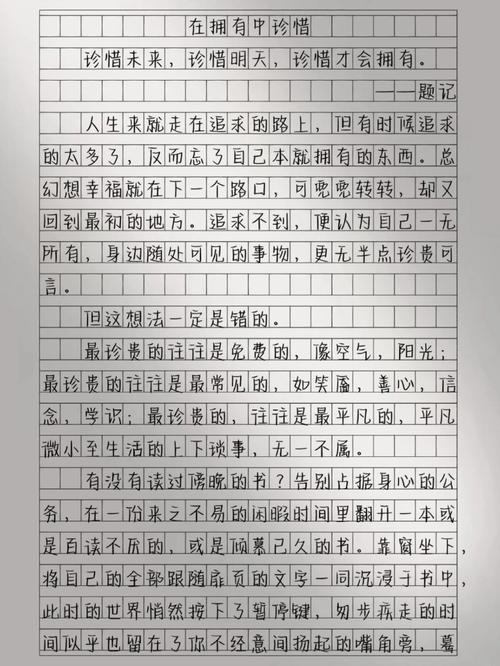 在拥有中珍惜
珍惜未来，珍惜明天，珍惜才会拥有。
——题记
人生来就走在追求的路上，但有时候追求
的太多了，反而忘了自己本就拥有的东西。总
幻想幸福就在下一个路口，可兜兜转转，却又
回到最初的地方。追求不到，便认为自己一无
所有，身边随处可见的事物，更无半点珍贵可
言。
但这想法一定是错的。
最珍贵的往往是免费的，像空气，阳光；
最珍贵的往往是最常见的，如笑靥，善心，信
念，学识；最珍贵的，往往是最平凡的，平凡
微小至生活的上下琐事，无一不属。
有没有读过傍晚的书？告别占据身心的公
务，在一份来之不易的闲暇时间里翻开一本或
是百读不厌的，或是倾慕已久的书。靠窗坐下，
将自己的全部跟随扉页的文字一同沉浸于书中，
此时的世界悄然按下了暂停键，匆步疾走的时
间似乎也留在了你不经意间扬起的嘴角旁，暮